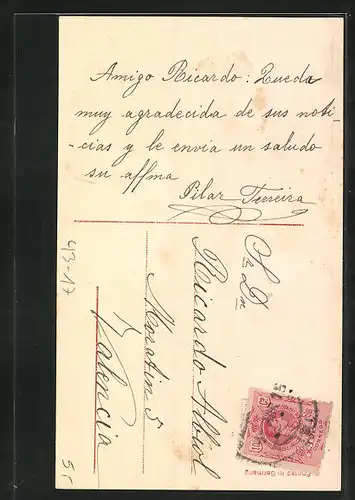 Amigo Ricardo: Queda
muy agradecida de sus noti-
-cias y le envia un saludo
su affma
Pilar Ferreira
Sr Dn
Ricardo Albiol
Moratin 5
Valencia
43-17
Printed in Germany